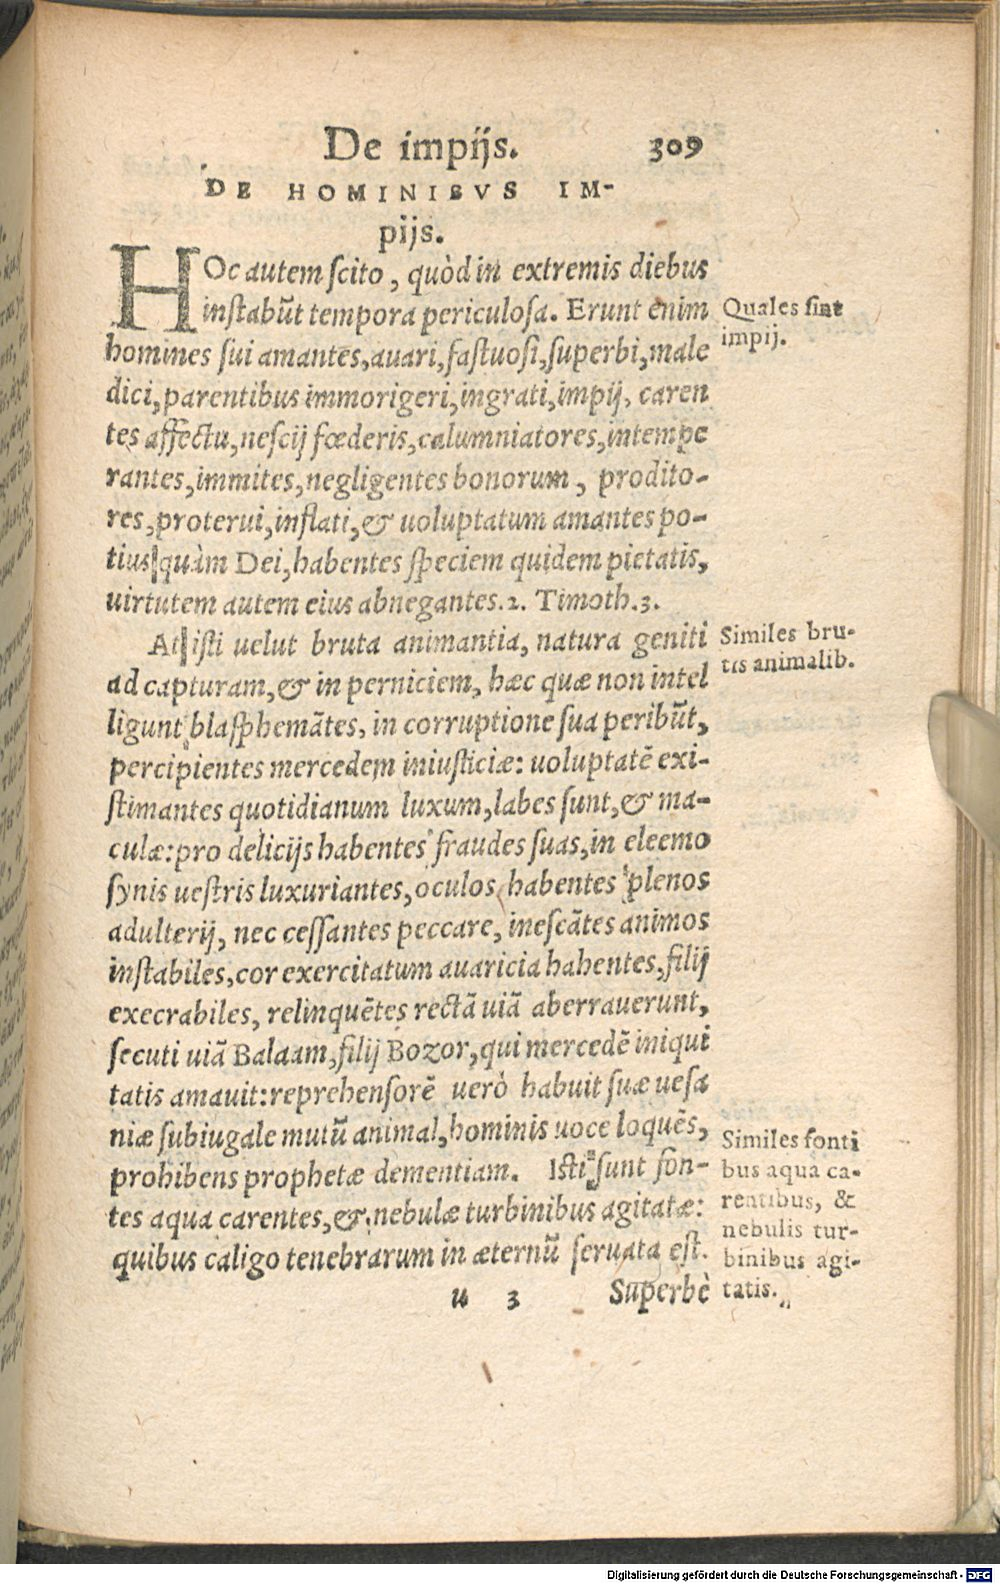 De impijs. 309
DE HOMINIBVS IM-
pijs.
HOc autem scito, quòd in extremis diebus
instabūt tempora periculosa. Erunt enim
homines sui amantes, auari, fastuosi, superbi, male
dici, parentibus immorigeri, ingrati, impij, caren
tes affectu, nescij fœderis, calumniatores, intempe
rantes, immites, negligentes bonorum, prodito-
res, proterui, inflati, & uoluptatum amantes po-
tius quàm Dei, habentes speciem quidem pietatis,
uirtutem autem eius abnegantes. 2. Timoth. 3.
At isti uelut bruta animantia, natura geniti
ad capturam, & in perniciem, hæc quæ non intel
ligunt blasphemātes, in corruptione sua peribūt,
percipientes mercedem iniusticiæ: uoluptatē exi-
stimantes quotidianum luxum, labes sunt, & ma-
culæ: pro delicijs habentes fraudes suas, in eleemo
synis uestris luxuriantes, oculos habentes plenos
adulterij, nec cessantes peccare, inescātes animos
instabiles, cor exercitatum auaricia habentes, filij
execrabiles, relinquētes rectā uiā aberrauerunt,
secuti uiā Balaam, filij Bozor, qui mercedē iniqui
tatis amauit: reprehensorē uerò habuit suæ uesa
niæ subiugale mutū animal, hominis uoce loquēs,
prohibens prophetæ dementiam. Isti sunt fon-
tes aqua carentes, & nebulæ turbinibus agitatæ:
quibus caligo tenebrarum in æternū seruata est.
u 3 Superbè
Quales sint
impij.
Similes bru-
tis animalib.
Similes fonti
bus aqua ca-
rentibus, &
nebulis tur-
binibus agi-
tatis.
Digitalisierung gefördert durch die Deutsche Forschungsgemeinschaft - DFG